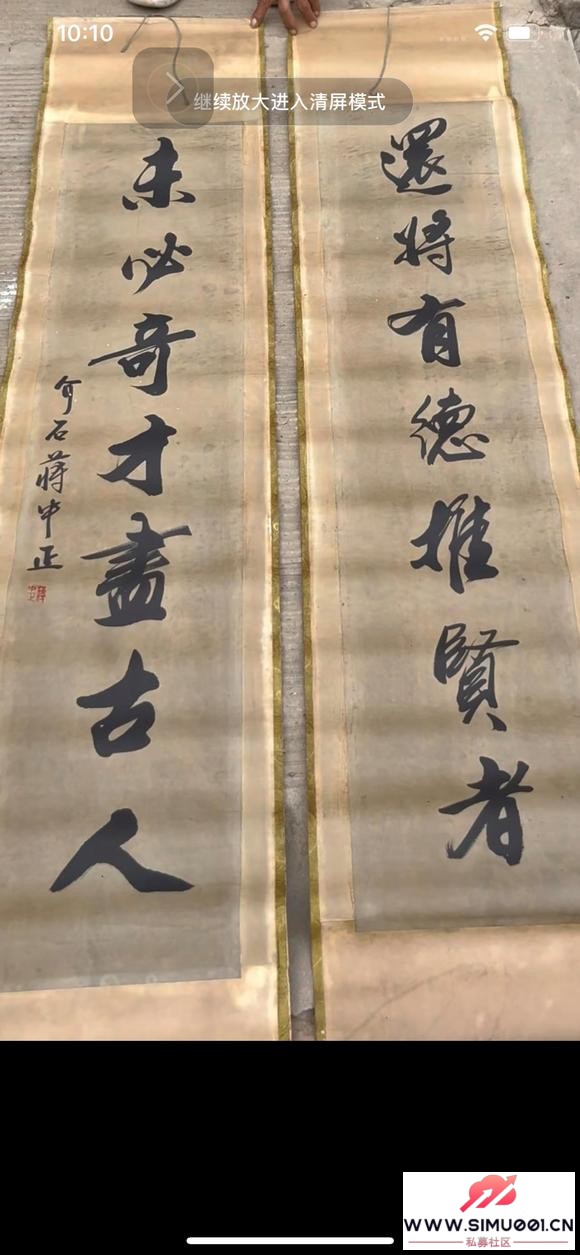 10:10
继续放大进入清屏模式
還將有德推賢者
未必奇才盡古人
介石蔣中正
WWW.SIMU001.CN
私募社区